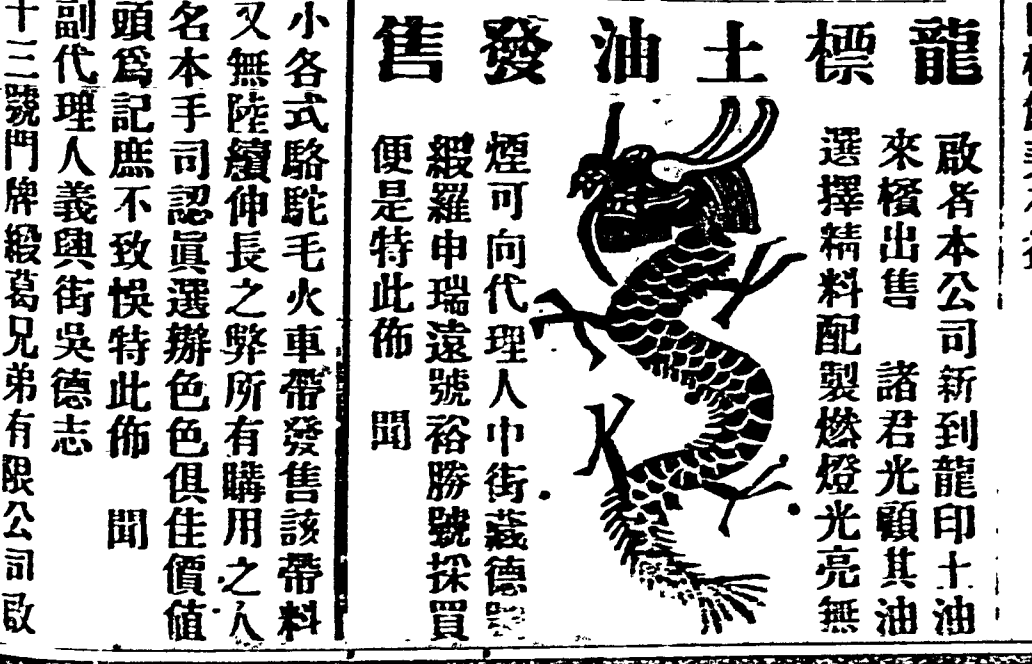 龍標土油發售
啟者本公司新到龍印土油
來檳出售　諸君光顧其油
選擇精料配製燃燈光亮無
煙可向代理人中街藏德
緞羅申瑞遠號裕勝號採買
便是特此佈　聞
小各式駱駝毛火車帶發售該帶料
又無陸續伸長之弊所有購用之人
名本手司認眞選辦色色俱佳價值
頭爲記庶不致悞特此佈　聞
副代理人義興街吳德志
十三號門牌緞葛兄弟有限公司啟